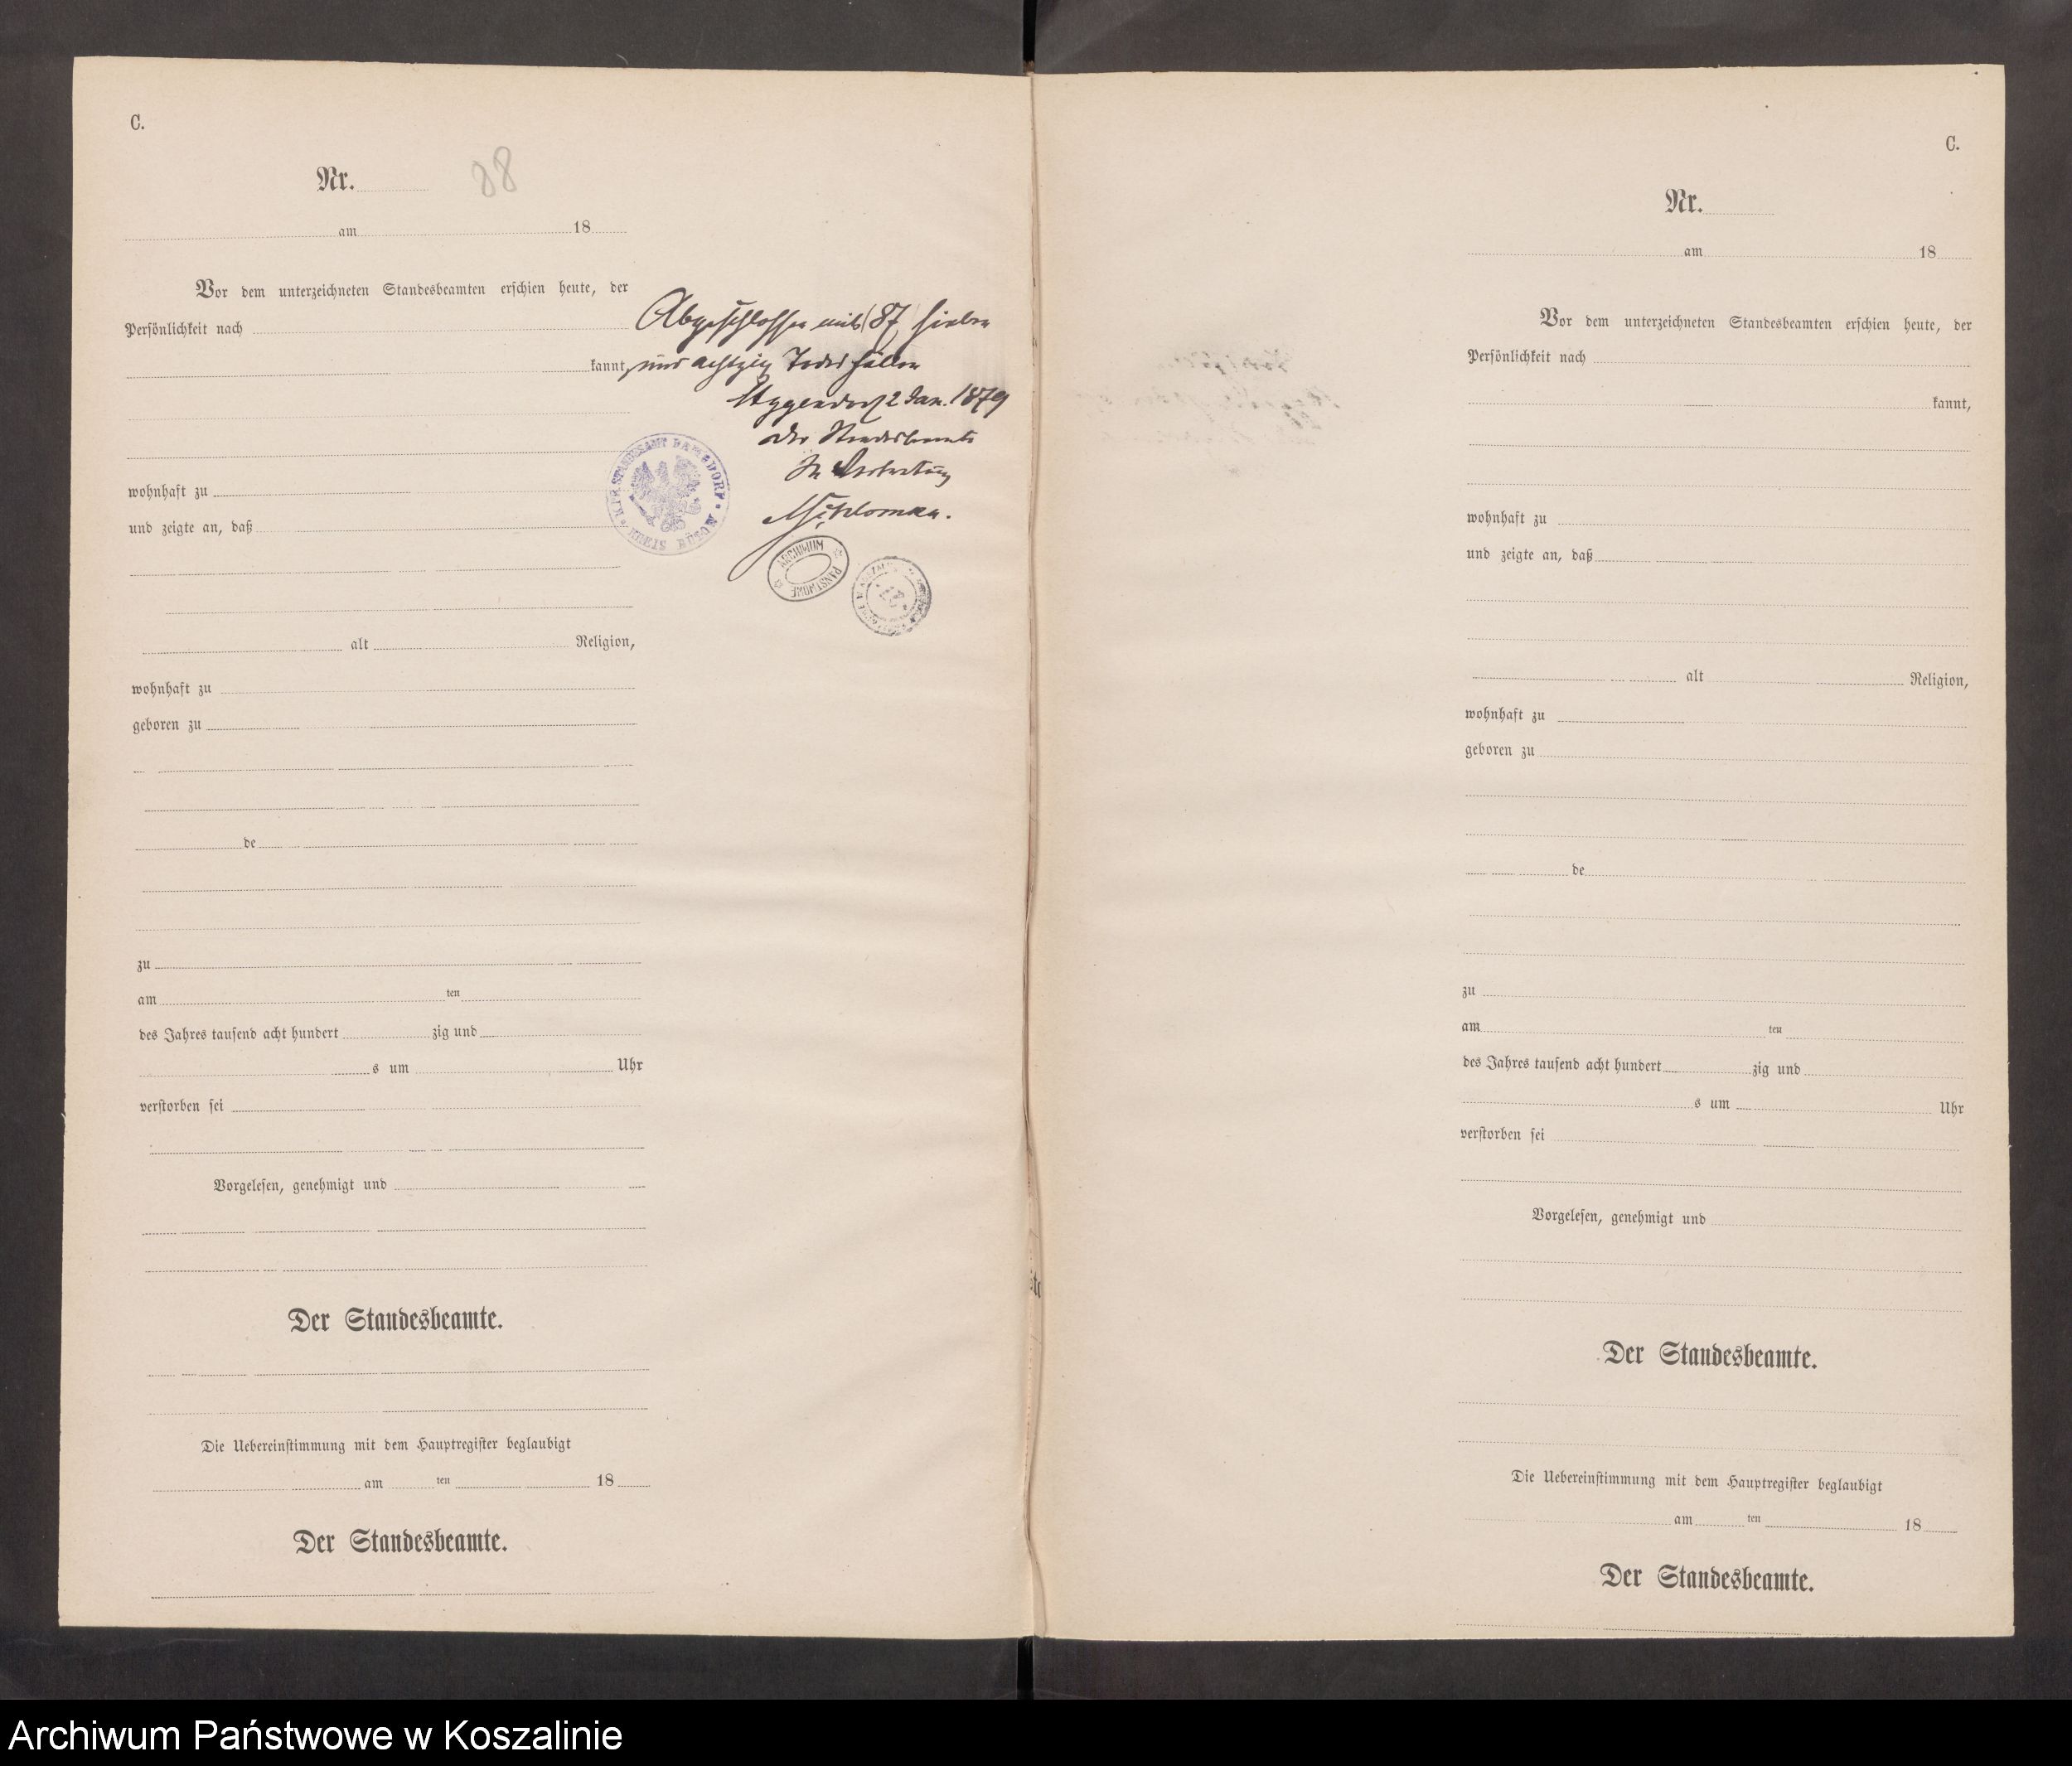 C.
Nr.
88
am 18
Vor dem unterzeichneten Standesbeamten erschien heute, der
Persönlichkeit nach
kannt,
wohnhaft zu
und zeigte an, daß
alt Religion,
wohnhaft zu
geboren zu
de
zu
am ten
des Jahres tausend acht hundert zig und
s um Uhr
verstorben sei
Vorgelesen, genehmigt und
Der Standesbeamte.
Die Uebereinstimmung mit dem Hauptregister beglaubigt
am ten 18
Der Standesbeamte.
Abgeschlossen mit (87) sieben
und achtzig Todesfällen
2 Jan. 1879
Der Standesbeamte
In Vertretung
STANDESAMT KREIS BÜTOW
ARCHIWUM PAŃSTWOWE
C.
Nr.
am 18
Vor dem unterzeichneten Standesbeamten erschien heute, der
Persönlichkeit nach
kannt,
wohnhaft zu
und zeigte an, daß
alt Religion,
wohnhaft zu
geboren zu
de
zu
am ten
des Jahres tausend acht hundert zig und
s um Uhr
verstorben sei
Vorgelesen, genehmigt und
Der Standesbeamte.
Die Uebereinstimmung mit dem Hauptregister beglaubigt
am ten 18
Der Standesbeamte.
Archiwum Państwowe w Koszalinie